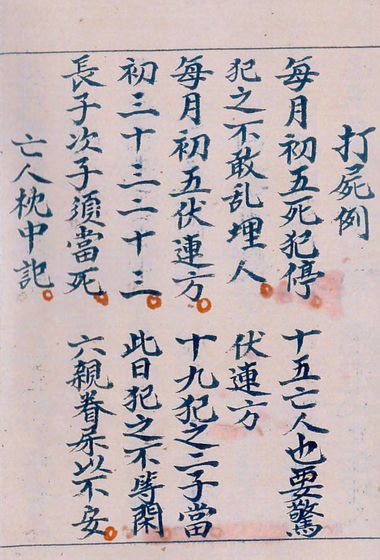 打屍例
每月初五死犯停 十五亡人也要驚
犯之不敢乱埋人 伏連方
每月初五伏連方 十九犯之二子當
初三十三二十三 此日犯之不等閑
長子次子須當死 六親眷以不安
亡人枕中記